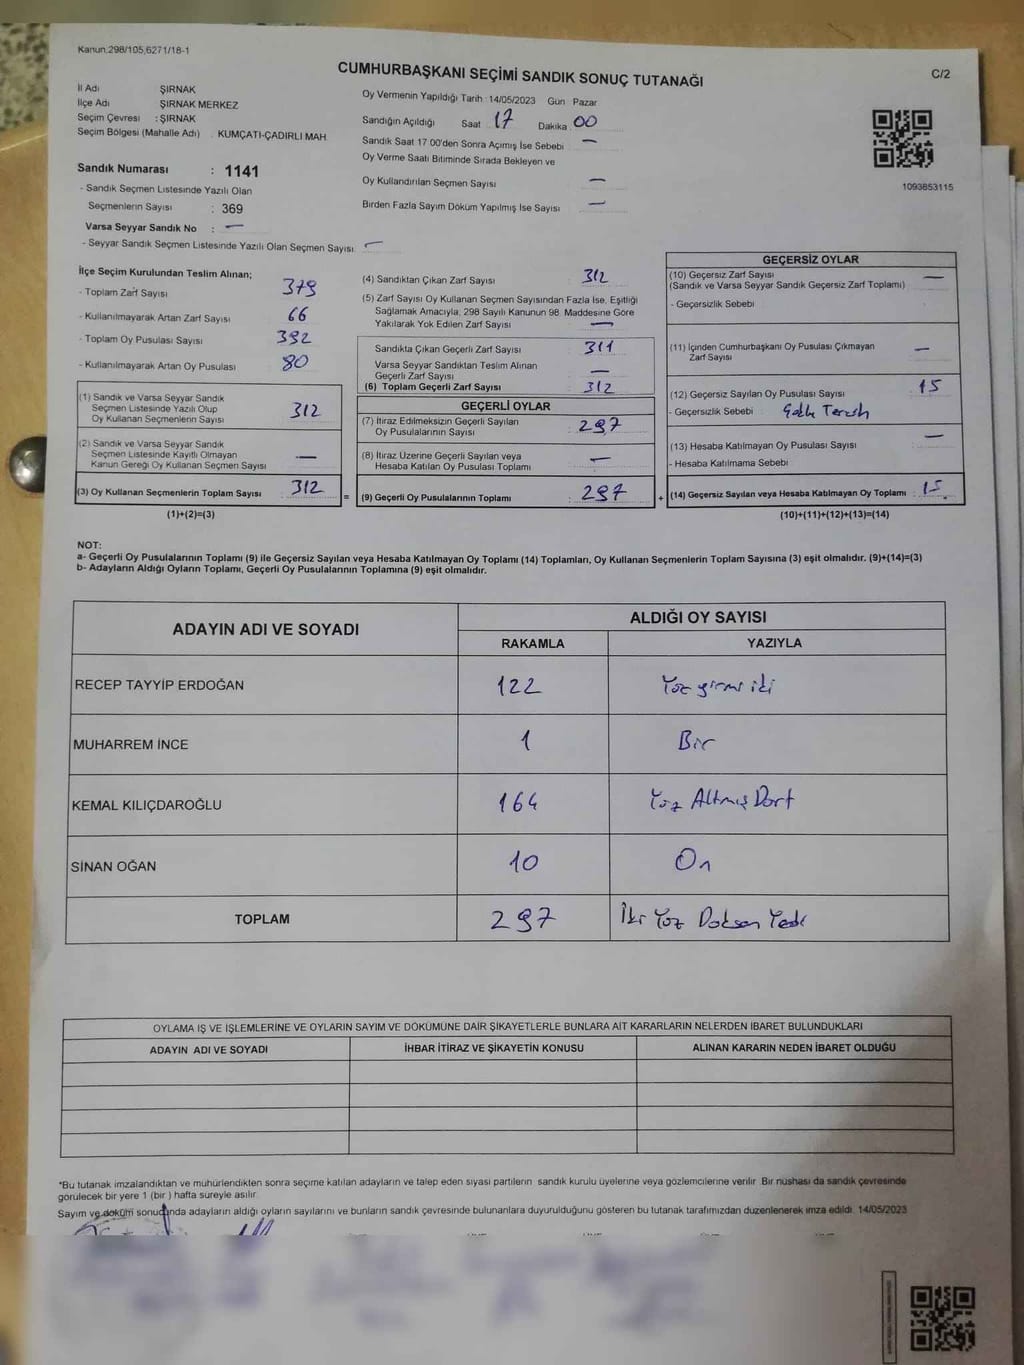 Kanun:298/105,6271/18-1
CUMHURBAŞKANI SEÇİMİ SANDIK SONUÇ TUTANAĞI
C/2
İl Adı ŞIRNAK
İlçe Adı ŞIRNAK MERKEZ
Seçim Çevresi : ŞIRNAK
Seçim Bölgesi (Mahalle Adı) . KUMÇATI-ÇADIRLI MAH.
Sandık Numarası : 1141
- Sandık Seçmen Listesinde Yazılı Olan
Seçmenlerin Sayısı : 369
Varsa Seyyar Sandık No : —
- Seyyar Sandık Seçmen Listesinde Yazılı Olan Seçmen Sayısı: —
Oy Vermenin Yapıldığı Tarih :14/05/2023 Gün : Pazar
Sandığın Açıldığı Saat 17 Dakika 00
Sandık Saat 17:00'den Sonra Açımış İse Sebebi —
Oy Verme Saati Bitiminde Sırada Bekleyen ve
Oy Kullandırılan Seçmen Sayısı —
Birden Fazla Sayım Döküm Yapılmış İse Sayısı —
1093853115
İlçe Seçim Kurulundan Teslim Alınan;
- Toplam Zarf Sayısı 379
- Kullanılmayarak Artan Zarf Sayısı 66
- Toplam Oy Pusulası Sayısı 392
- Kullanılmayarak Artan Oy Pusulası 80
(1) Sandık ve Varsa Seyyar Sandık
Seçmen Listesinde Yazılı Olup
Oy Kullanan Seçmenlerin Sayısı 312
(2) Sandık ve Varsa Seyyar Sandık
Seçmen Listesinde Kayıtlı Olmayan
Kanun Gereği Oy Kullanan Seçmen Sayısı —
(3) Oy Kullanan Seçmenlerin Toplam Sayısı 312 =
(1)+(2)=(3)
(4) Sandıktan Çıkan Zarf Sayısı : 312
(5) Zarf Sayısı Oy Kullanan Seçmen Sayısından Fazla İse, Eşitliği
Sağlamak Amacıyla, 298 Sayılı Kanunun 98. Maddesine Göre
Yakılarak Yok Edilen Zarf Sayısı : —
Sandıkta Çıkan Geçerli Zarf Sayısı : 311
Varsa Seyyar Sandıktan Teslim Alınan
Geçerli Zarf Sayısı : —
(6) Toplam Geçerli Zarf Sayısı : 312
GEÇERLİ OYLAR
(7) İtiraz Edilmeksizin Geçerli Sayılan
Oy Pusulalarının Sayısı : 297
(8) İtiraz Üzerine Geçerli Sayılan veya
Hesaba Katılan Oy Pusulası Toplamı : —
(9) Geçerli Oy Pusulalarının Toplamı : 297 +
GEÇERSİZ OYLAR
(10) Geçersiz Zarf Sayısı —
(Sandık ve Varsa Seyyar Sandık Geçersiz Zarf Toplamı)
- Geçersizlik Sebebi :
(11) İçinden Cumhurbaşkanı Oy Pusulası Çıkmayan
Zarf Sayısı : —
(12) Geçersiz Sayılan Oy Pusulası Sayısı : 15
- Geçersizlik Sebebi :
(13) Hesaba Katılmayan Oy Pusulası Sayısı : —
- Hesaba Katılmama Sebebi :
(14) Geçersiz Sayılan veya Hesaba Katılmayan Oy Toplamı : 15
(10)+(11)+(12)+(13)=(14)
NOT:
a- Geçerli Oy Pusulalarının Toplamı (9) ile Geçersiz Sayılan veya Hesaba Katılmayan Oy Toplamı (14) Toplamları, Oy Kullanan Seçmenlerin Toplam Sayısına (3) eşit olmalıdır. (9)+(14)=(3)
b- Adayların Aldığı Oyların Toplamı, Geçerli Oy Pusulalarının Toplamına (9) eşit olmalıdır.
ADAYIN ADI VE SOYADI ALDIĞI OY SAYISI
RAKAMLA YAZIYLA
RECEP TAYYİP ERDOĞAN 122 Yüz yirmi iki
MUHARREM İNCE 1 Bir
KEMAL KILIÇDAROĞLU 164 Yüz Altmış Dört
SİNAN OĞAN 10 On
TOPLAM 297 İki Yüz Doksan Yedi
OYLAMA İŞ VE İŞLEMLERİNE VE OYLARIN SAYIM VE DÖKÜMÜNE DAİR ŞİKAYETLERLE BUNLARA AİT KARARLARIN NELERDEN İBARET BULUNDUKLARI
ADAYIN ADI VE SOYADI İHBAR İTİRAZ VE ŞİKAYETİN KONUSU ALINAN KARARIN NEDEN İBARET OLDUĞU
*Bu tutanak imzalandıktan ve mühürlendikten sonra seçime katılan adayların ve talep eden siyasi partilerin sandık kurulu üyelerine veya gözlemcilerine verilir. Bir nüshası da sandık çevresinde
görülecek bir yere 1 (bir ) hafta süreyle asılır.
Sayım ve döküm sonucunda adayların aldığı oyların sayılarını ve bunların sandık çevresinde bulunanlara duyurulduğunu gösteren bu tutanak tarafımızdan düzenlenerek imza edildi. 14/05/2023